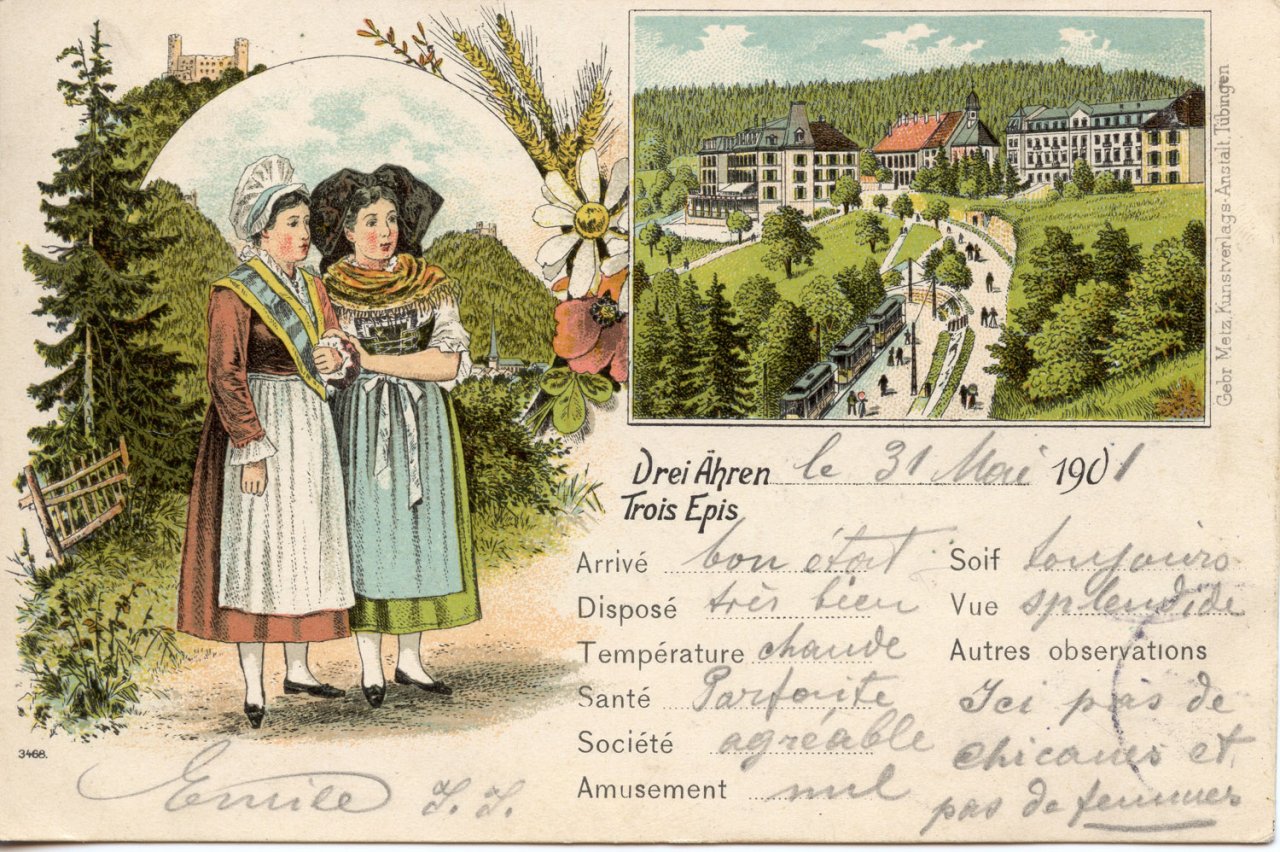 Gebr Metz, Kunstverlags-Anstalt, Tübingen
Drei Ähren le 31 Mai 1901
Trois Epis
Arrivé bon état
Disposé très bien
Température chaude
Santé Parfaite
Société agréable
Amusement nul
Soif toujours
Vue splendide
Autres observations
Ici pas de
chicanes et
pas de femmes
3468.
Emile